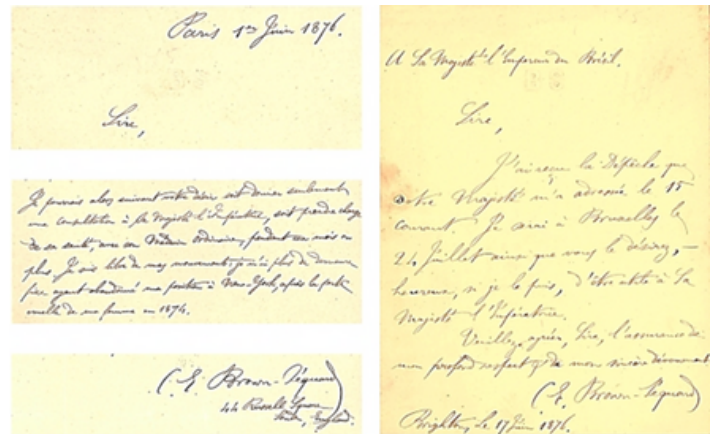 Paris 1er Juin 1876.
Sire,
Je pourrais alors suivant votre désir, soit donner seulement
une consultation à Sa Majesté l'Impératrice, soit prendre charge
de sa santé, avec son Médecin ordinaire, pendant un mois ou
plus. Je suis libre de mes mouvements je n'ai plus de demeure
fixe ayant abandonné ma position à New-York, après la perte
cruelle de ma femme en 1874.
C. E. Brown-Séquard
44 Russell Square
London, England.
A Sa Majesté l'Empereur du Brésil.
Sire,
J'ai reçu la Dépêche que
votre Majesté m'a adressée le 15
courant. Je serai à Bruxelles le
24 Juillet ainsi que vous le désirez, —
heureux, si je le puis, d'être utile à Sa
Majesté l'Impératrice.
Veuillez agréer, Sire, l'assurance de
mon profond respect & de mon sincère dévouement
(C. E. Brown-Séquard)
Brighton, Le 17 Juin 1876.